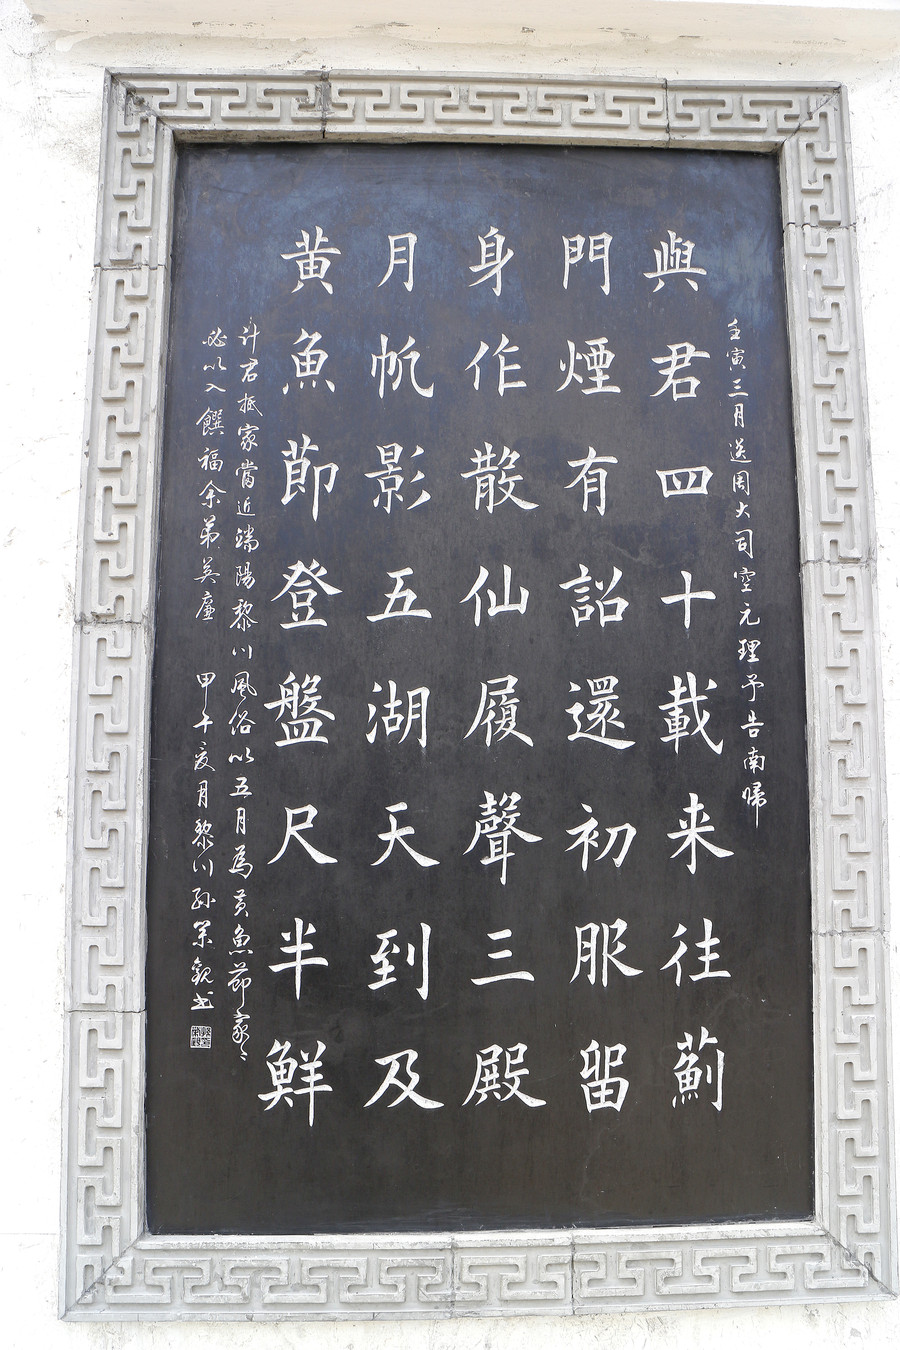 壬寅三月送周大司空元理予告南歸
與君四十載来往薊
門煙有詔還初服留
身作散仙履聲三殿
月帆影五湖天到及
黄魚節登盤尺半鮮
計君抵家當近端陽黎川風俗以五月為黄魚節家〻
必以入饌福余弟英廉 甲午夏月黎川孫榮觀书